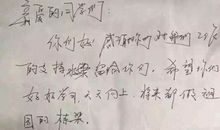 亲爱的同学们:
你们好! 感谢你们对我们工作
的支持 给你们 希望你们
好好学习,天天向上,将来都做祖
国的栋梁。